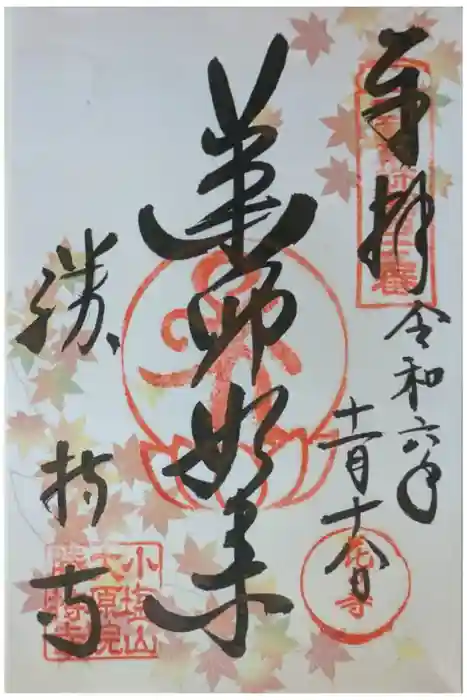 奉拝
令和六年
十一月十八日
薬師如来
勝持寺
花の寺
小塩山
大原院
勝持寺